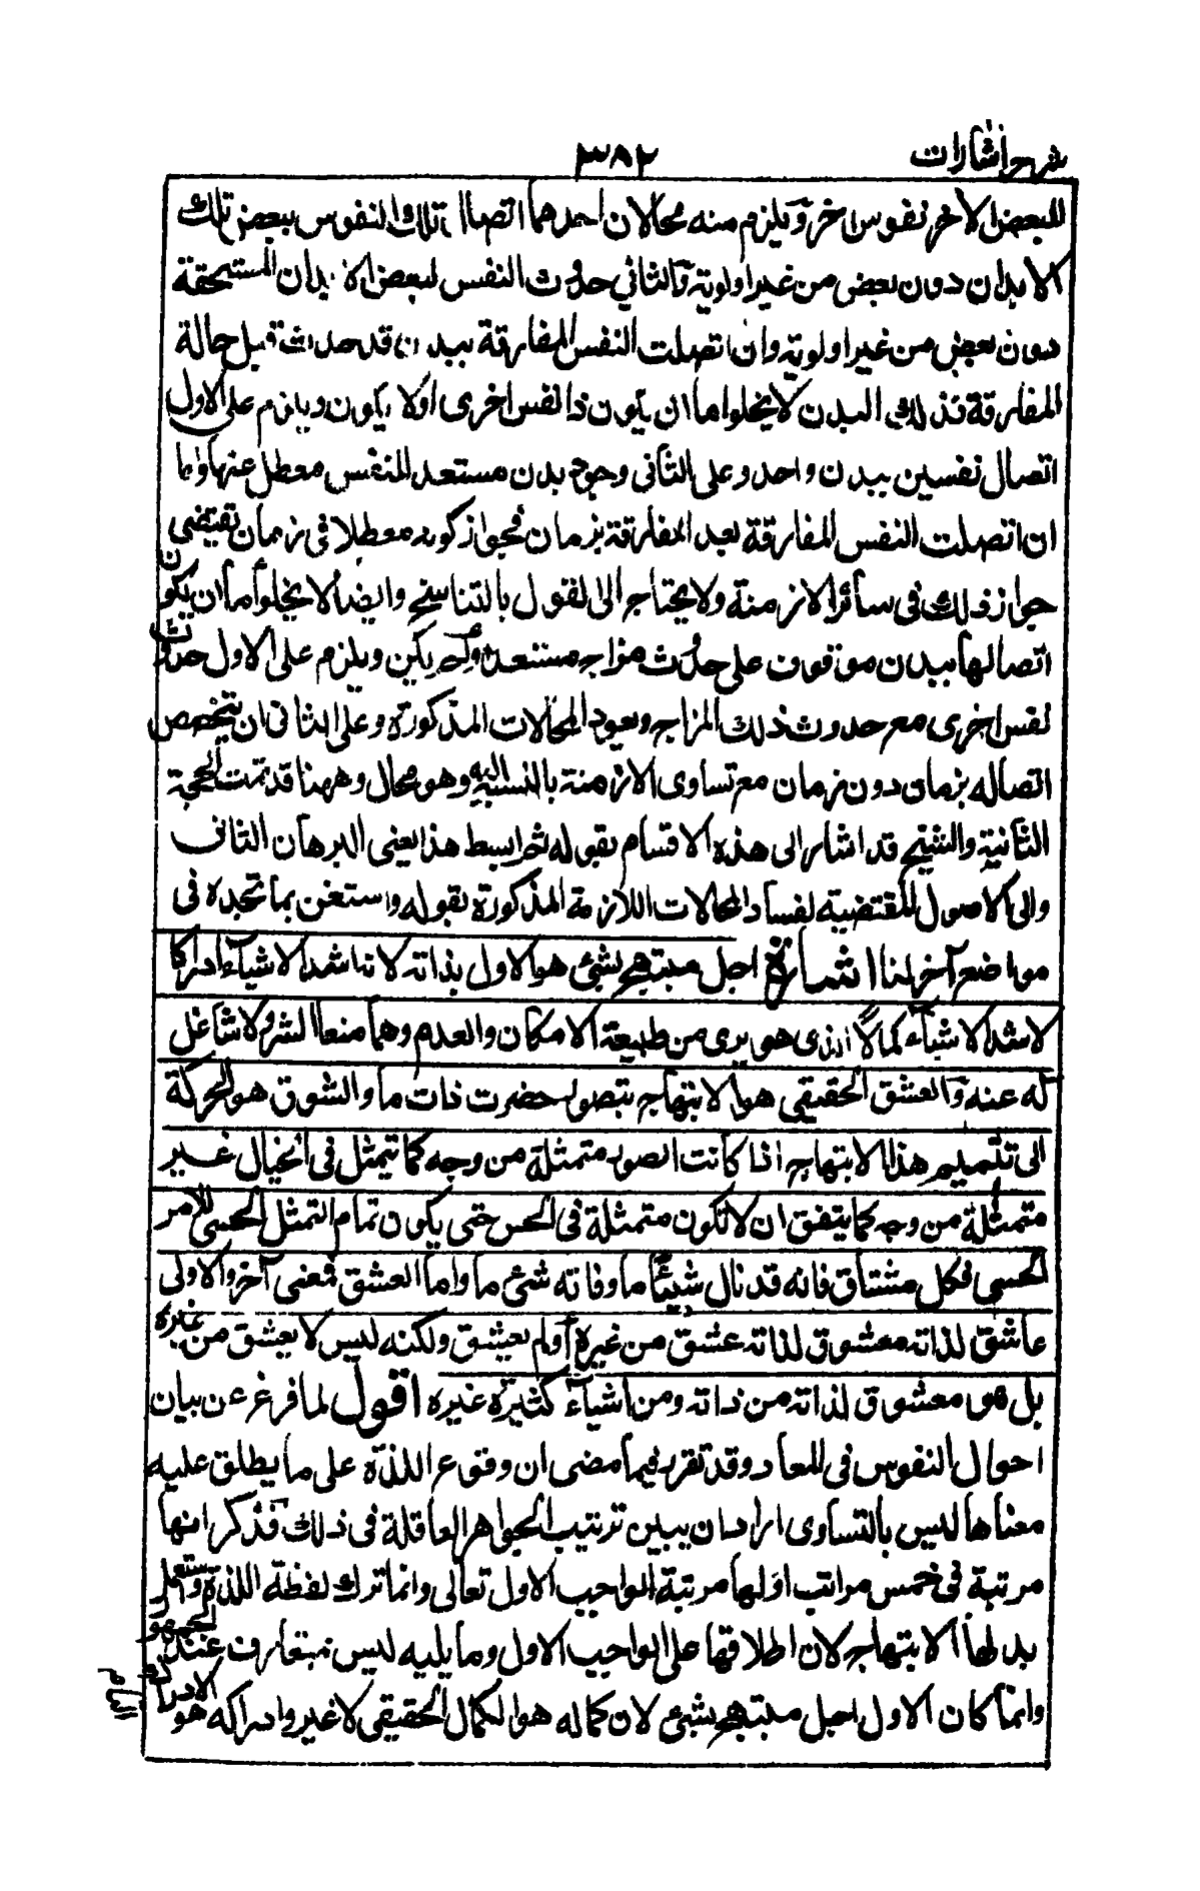 شرح اشارات
٣٨٢
للبعض الاخر نفوس اخر ويلزم منه محالان احدهما اتصال تلك النفوس ببعض تلك
الابدان دون بعض من غير اولوية والثاني حدوث النفس لبعض الابدان المستحقة
دون بعض من غير اولوية وان اتصلت النفس المفارقة ببدن قد حدث قبل حالة
المفارقة فذلك البدن لا يخلوا ما ان يكون ذا نفس اخرى اولا يكون ويلزم على الاول
اتصال نفسين ببدن واحد وعلى الثاني وجود بدن مستعد للنفس معطل عنها واما
ان اتصلت النفس المفارقة بعد المفارقة بزمان فجواز كونه معطلا في زمان تقتضى
جواز ذلك في سائر الازمنة ولا يحتاج الى القول بالتناسخ وايضا لا يخلو اما ان يكون
اتصالها ببدن موقوف على حدوث مزاج مستعد او لم يكن ويلزم على الاول حدوث
نفس اخرى مع حدوث ذلك المزاج ويعود المحالات المذكورة وعلى الثاني ان يتخصص
اتصاله بزمان دون زمان مع تساوى الازمنة بالنسبة اليه وهو محال وههنا قد تمت الحجة
الثانية والشيخ قد اشار الى هذه الاقسام بقوله ثم ابسط هذا يعنى البرهان الثانى
والى الاصول المقتضية لفساد المحالات اللازمة المذكورة بقوله واستغن بما تجده في
مواضع آخر لنا اشارة اجل مبتهج بشئ هو الاول بذاته لانه اشد الاشياء ادراكا
لاشد الاشياء كمالا الذى هو برى من طبيعة الامكان والعدم وهما منبعا الشر ولا شاغل
له عنه والعشق الحقيقي هو الابتهاج بتصور حضرت ذات ما والشوق هو الحركة
الى تتميم هذا الابتهاج اذا كانت الصورة متمثلة من وجه كما تتمثل في الخيال غير
متمثلة من وجه كما يتفق ان لا تكون متمثلة في الحس حتى يكون تمام التمثل الحسي للامر
الحسي فكل مشتاق فانه قد نال شيئا ما وفاته شئ ما واما العشق فمعنى آخر والاولى
عاشق لذاته معشوق لذاته عشق من غيره او لم يعشق ولكنه ليس لا يعشق من غيره
بل هو معشوق لذاته من ذاته ومن اشياء كثيرة غيره اقول لما فرغ عن بيان
احوال النفوس في المعاد وقد تقرر فيما مضى ان وقوع اللذة على ما يطلق عليه
معناها ليس بالتساوى اراد ان يبين ترتيب الجواهر العاقلة في ذلك فذكر انها
مرتبة في خمس مراتب اولها مرتبة الواجب الاول تعالى وانما ترك لفظة اللذة واستعمل
بدلها الابتهاج لان اطلاقها على الواجب الاول وما يليه ليس بمتعارف عند الجمهور
وانما كان الاول اجل مبتهج بشئ لان كماله هو الكمال الحقيقي لا غير وادراكه هو الادراك التام